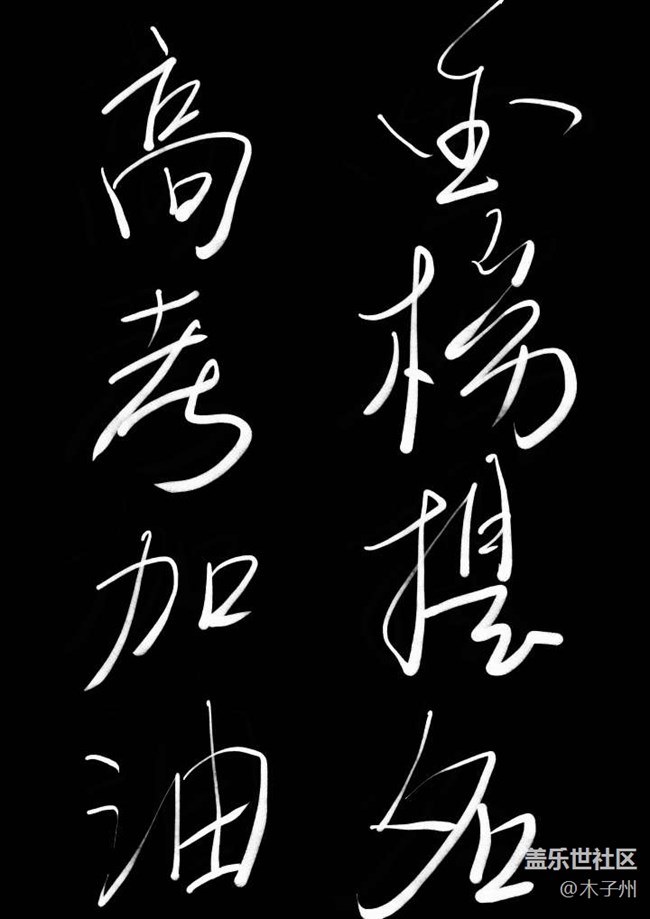 高考加油
金榜提名
盖乐世社区
@木子州